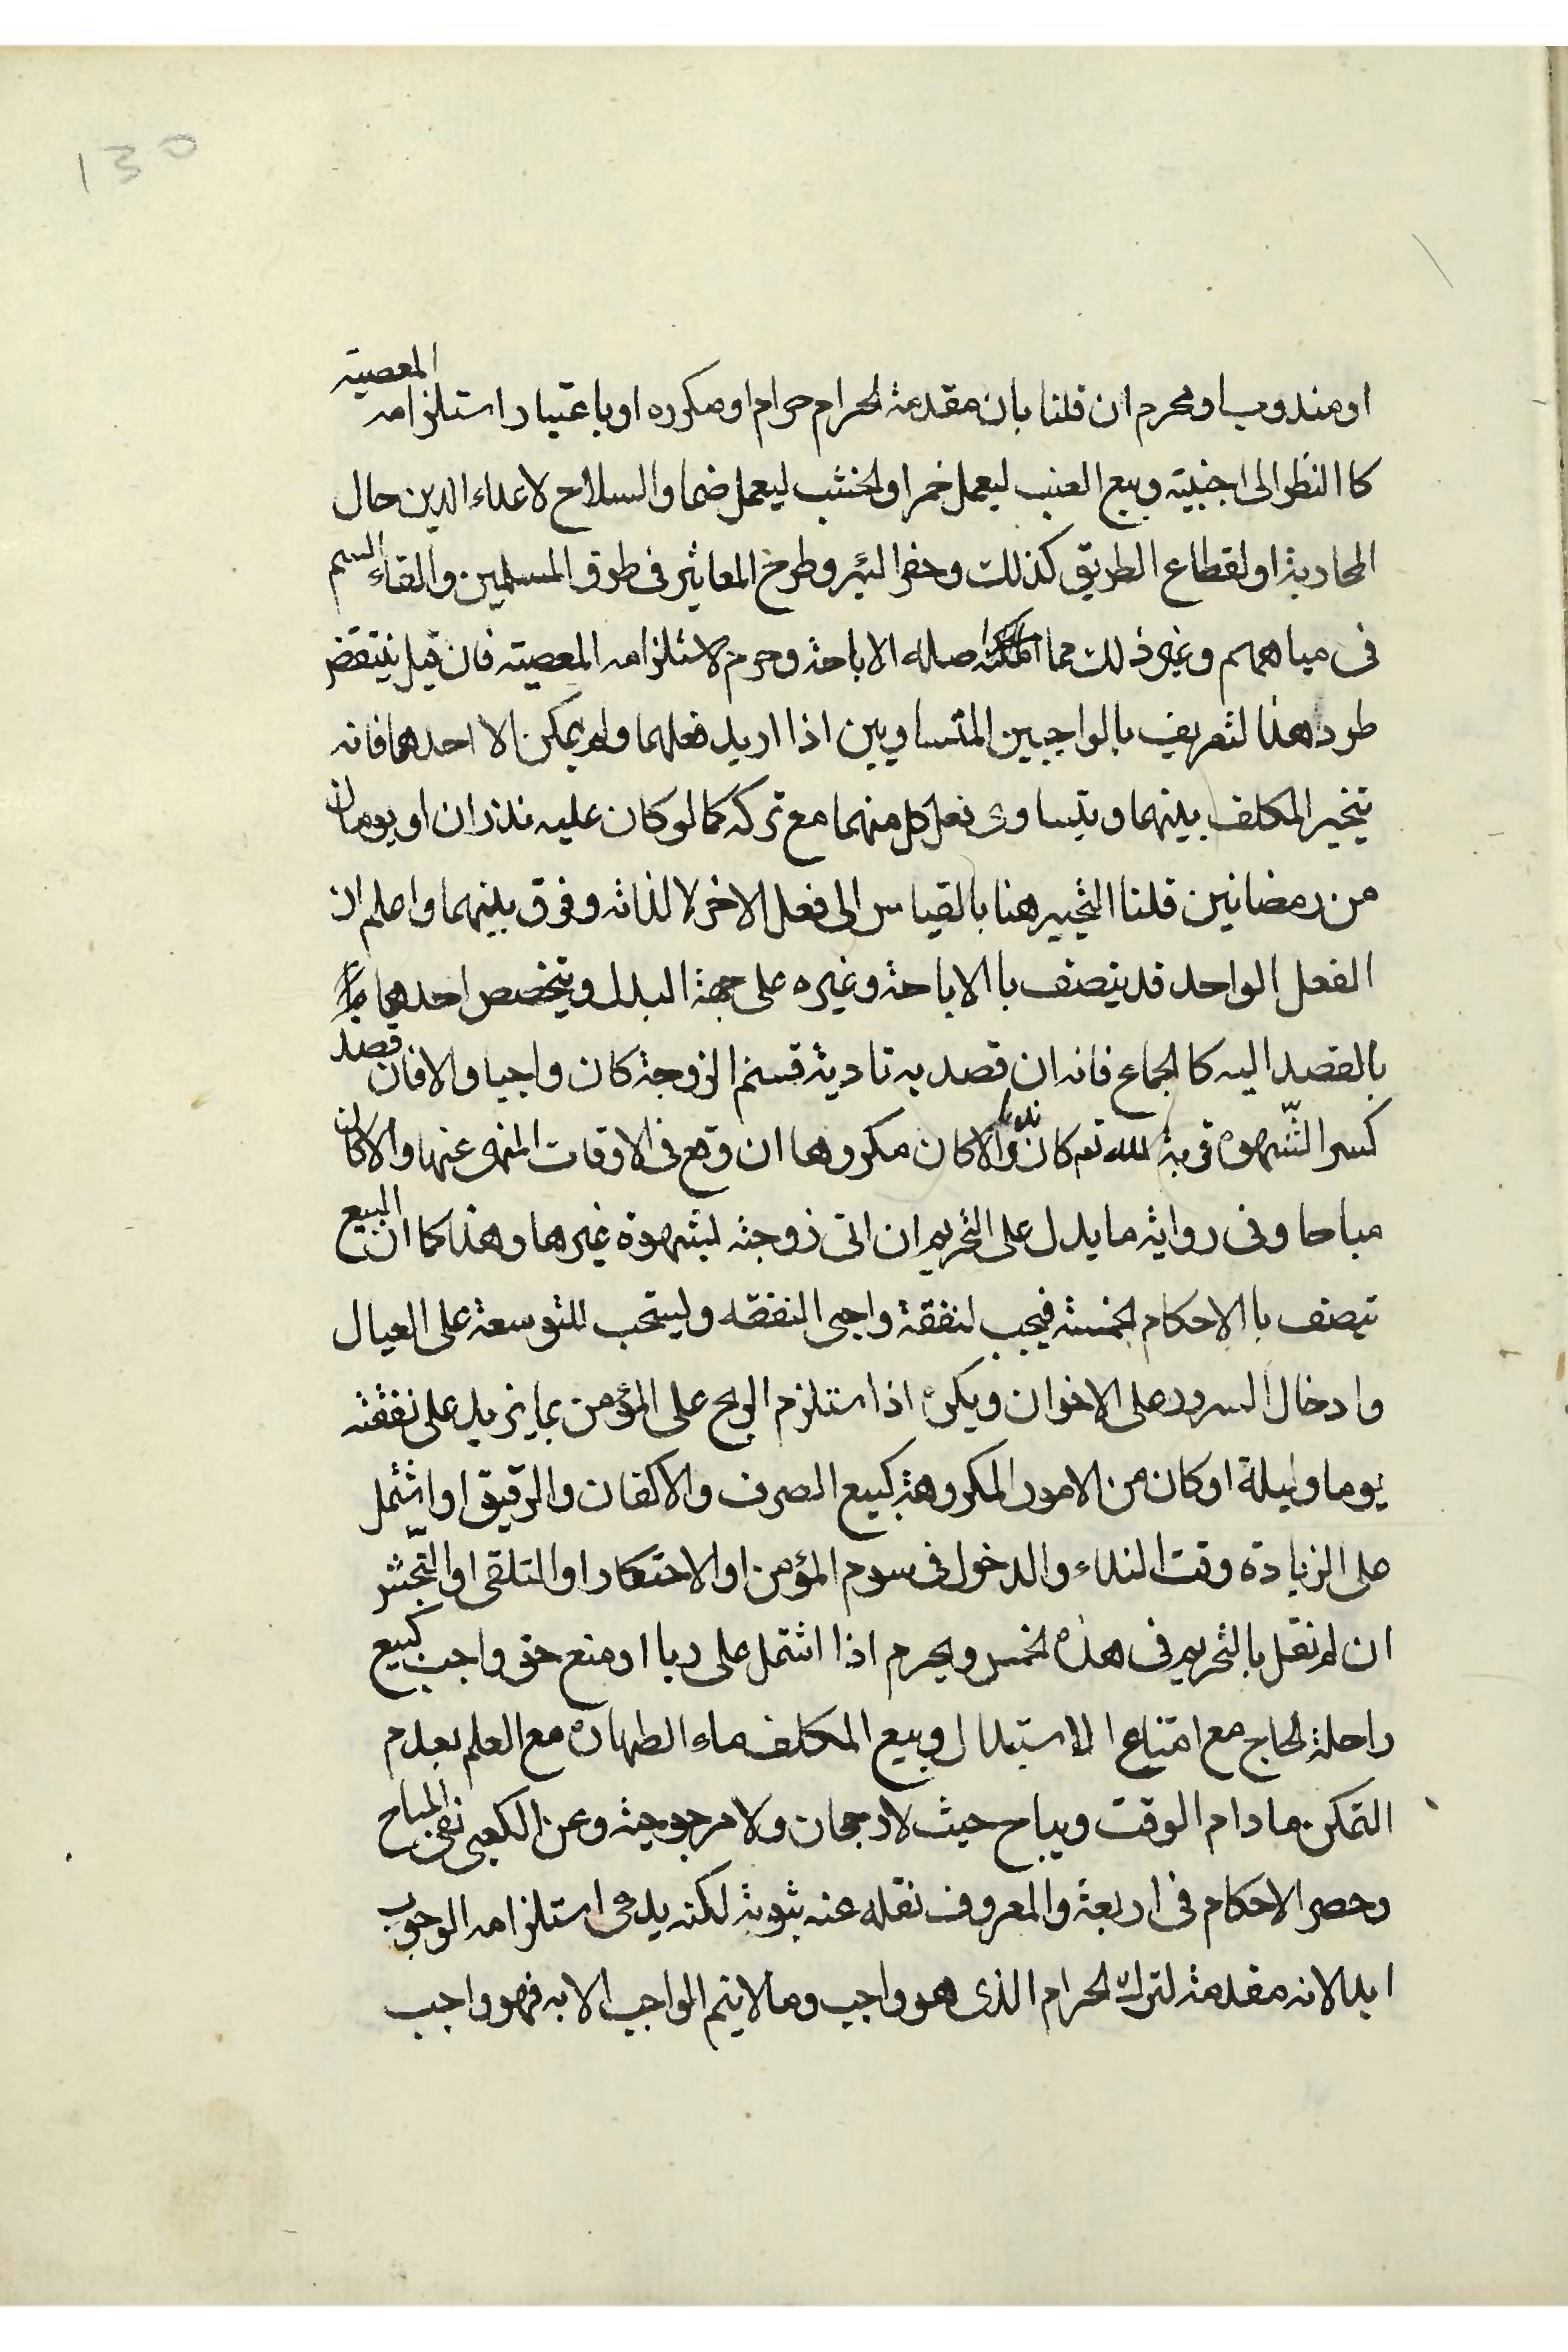 130
او مندوب او محرم ان قلنا بان مقدمة الحرام حرام او مكروه او باعتبار استلزامه المعصيته
كا النظر الى اجنبيته وبيع العنب ليعمل خمرا والخشب ليعمل صنما والسلاح لاعداء الدين حال
المحاربة او لقطاع الطريق كذلك وحفر البئر وطرح المعاثير فى طرق المسلمين والقاء السم
فى مياههم وغير ذلك مما اصله الاباحة وحرم لاستلزامه المعصيته فان قيل ينتقض
طرد هذا لتعريف بالواجبين المتساويين اذا اريد فعلهما ولم يمكن الا احدهما فانه
يتخير المكلف بينهما ويتساوى فعل كل منهما مع تركه كما لو كان عليه نذران او يومان
من رمضانين قلنا التخيير هنا بالقياس الى فعل الاخر لا لذاته وفرق بينهما واعلم ان
الفعل الواحد قد يتصف با الاباحة وغيره على جهة البدل ويتخصص احدهما
بالقصد اليه كا لجماع فانه ان قصد به تادية قسم الزوجة كان واجبا والا فان قصد
كسر الشّهوه قربة لله تع كان ندبا والا كان مكروها ان وقع فى الاوقات المنهى عنها والا كان
مباحا وفى رواية ما يدل على التحريم ان اتى زوجته لشهوة غيرها وهذا كما ان البيع
تيصف با الاحكام الخمسة فيجب لنفقة واجبى النفقه ويستحب للتوسعة على العيال
وادخال السرور على الاخوان ويكره اذا ستلزم الربح على المؤمن بما يزيد على نفقته
يوما وليلة او كان من الامور المكروهة كبيع الصرف والاكفان والرقيق او اشتمل
على الزيادة وقت النداء والدخول فى سوم المؤمن او الاحتكار او التلقى او النّجش
ان لم نقل بالتحريم فى هذه الخمس ويحرم اذا اشتمل على ربا او منع حق واجب كبيع
راحلة الحاج مع امتناع الاستبدال وبيع المكلف ماء الطهارة مع العلم بعدم
التمكن ما دام الوقت ويباح حيث لا رجحان ولا مرجوحيته وعن الكعبى نفى المباح
وحصر الاحكام فى اربعة والمعروف نقله عنه بثوبة لكنه يدعى استلزامه الوجوب
ابدا لانه مقدمة لترك الحرام الذى هو واجب وما لا يتم الواجب الا به فهو واجب